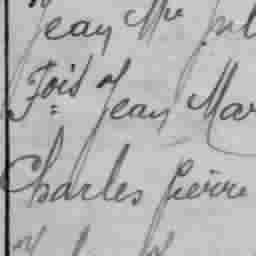 Jean Mie
Fois Jean Mar
Charles Pierre